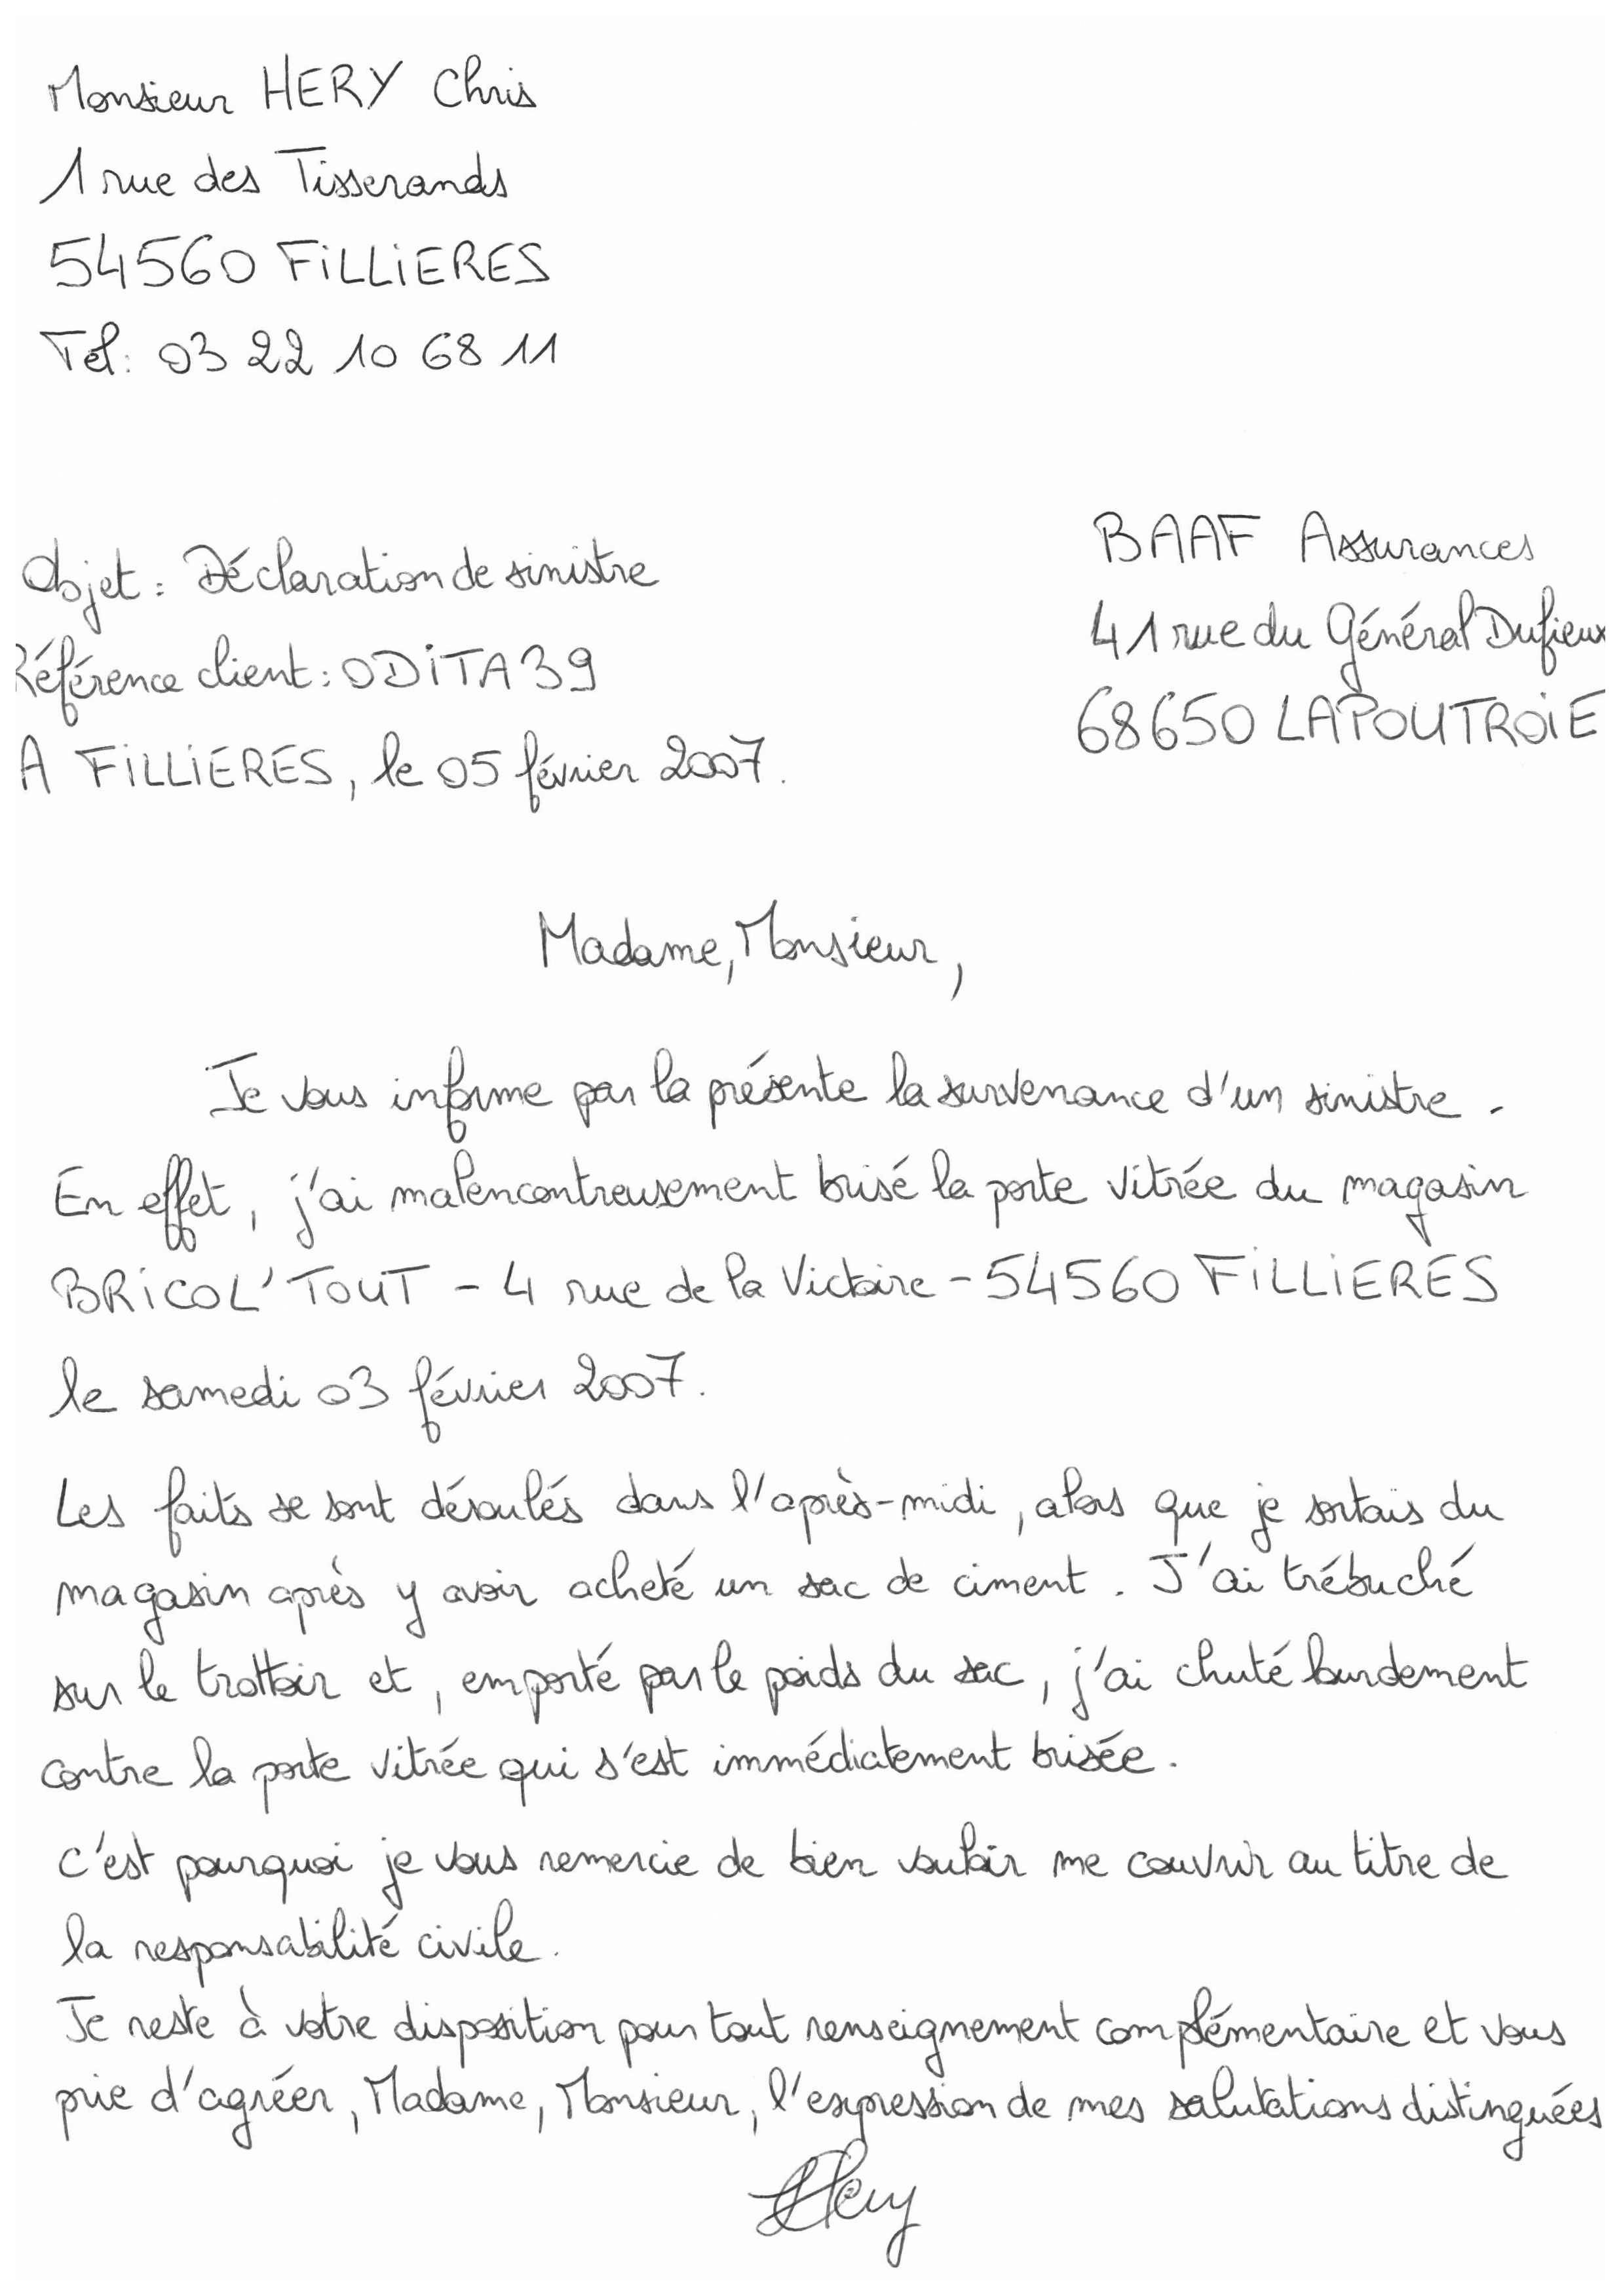 Monsieur HERY Chris
1 rue des Tisserands
54560 FILLIERES
Tél: 03 22 10 68 11
BAAF Assurances
41 rue du Général Dufieux
68650 LAPOUTROIE
Objet : Déclaration de sinistre
Référence client : ODITA39
A FILLIERES, le 05 février 2007.
Madame, Monsieur,
Je vous informe par la présente la survenance d'un sinistre.
En effet, j'ai malencontreusement brisé la porte vitrée du magasin
BRICOL'TOUT - 4 rue de la Victoire - 54560 FILLIERES
le samedi 03 février 2007.
Les faits se sont déroulés dans l'après-midi, alors que je sortais du
magasin après y avoir acheté un sac de ciment. J'ai trébuché
sur le trottoir et, emporté par le poids du sac, j'ai chuté lourdement
contre la porte vitrée qui s'est immédiatement brisée.
C'est pourquoi je vous remercie de bien vouloir me couvrir au titre de
la responsabilité civile.
Je reste à votre disposition pour tout renseignement complémentaire et vous
prie d'agréer, Madame, Monsieur, l'expression de mes salutations distinguées
Hery